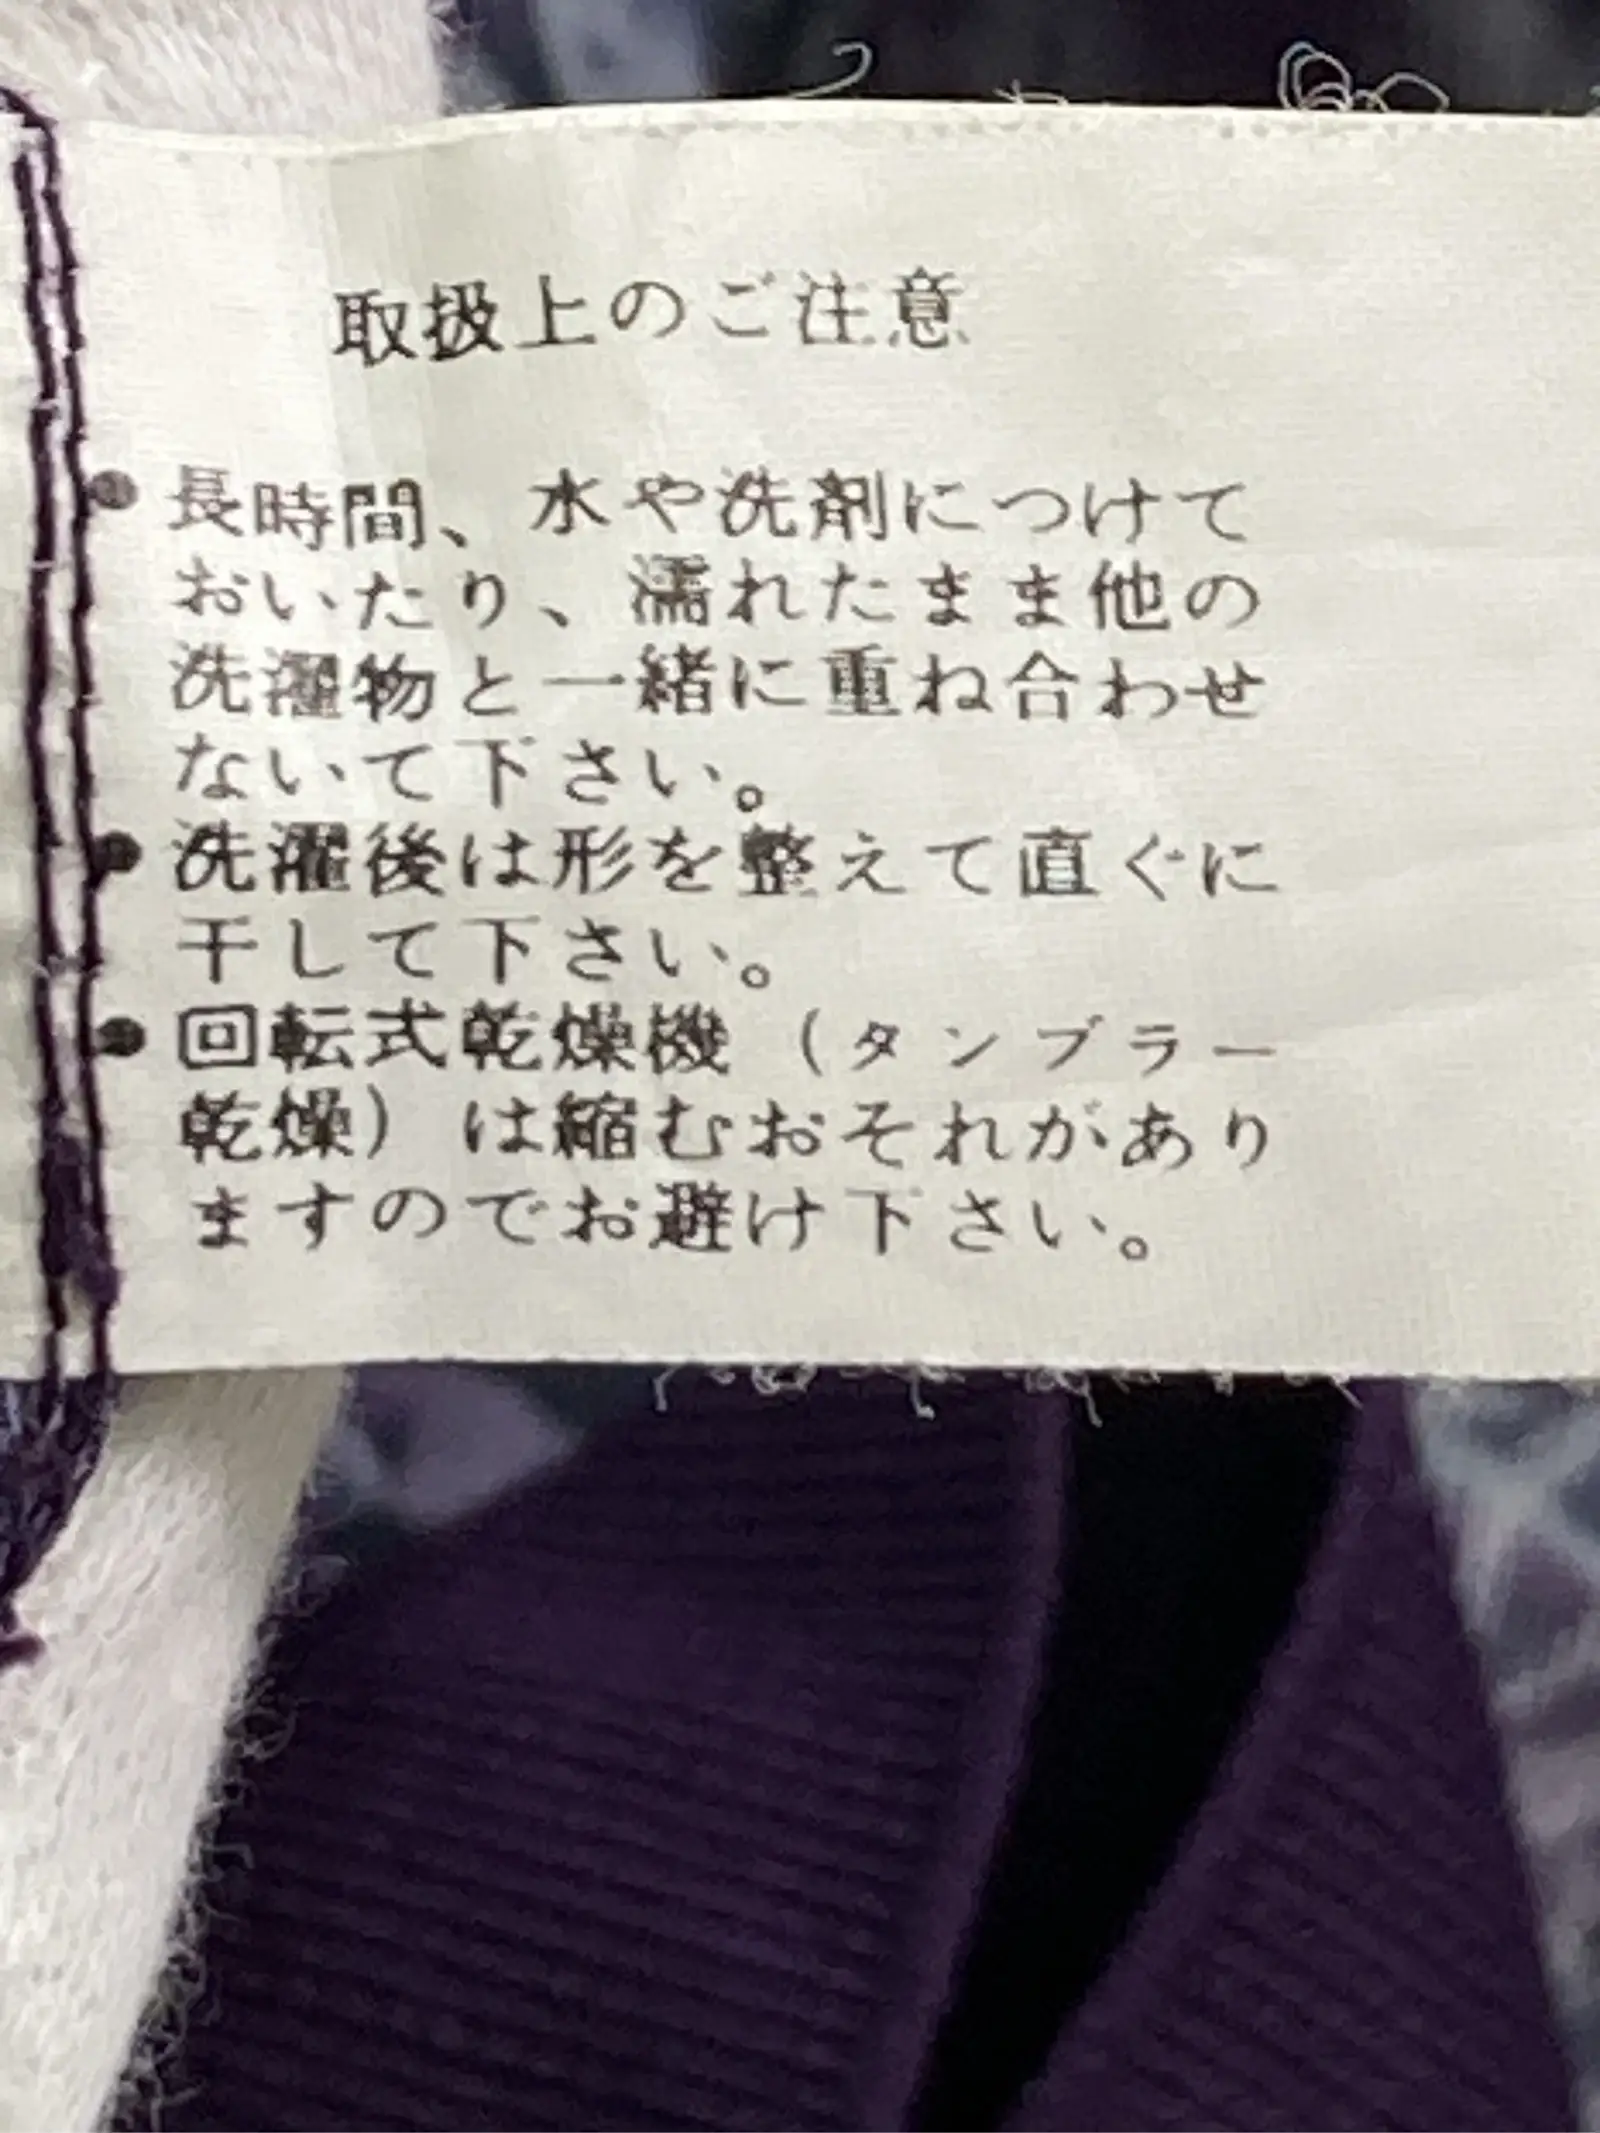 取扱上のご注意
●長時間、水や洗剤につけて
おいたり、濡れたまま他の
洗濯物と一緒に重ね合わせ
ないて下さい。
●洗濯後は形を整えて直ぐに
干して下さい。
●回転式乾燥機（タンブラー
乾燥）は縮むおそれがあり
ますのでお避け下さい。